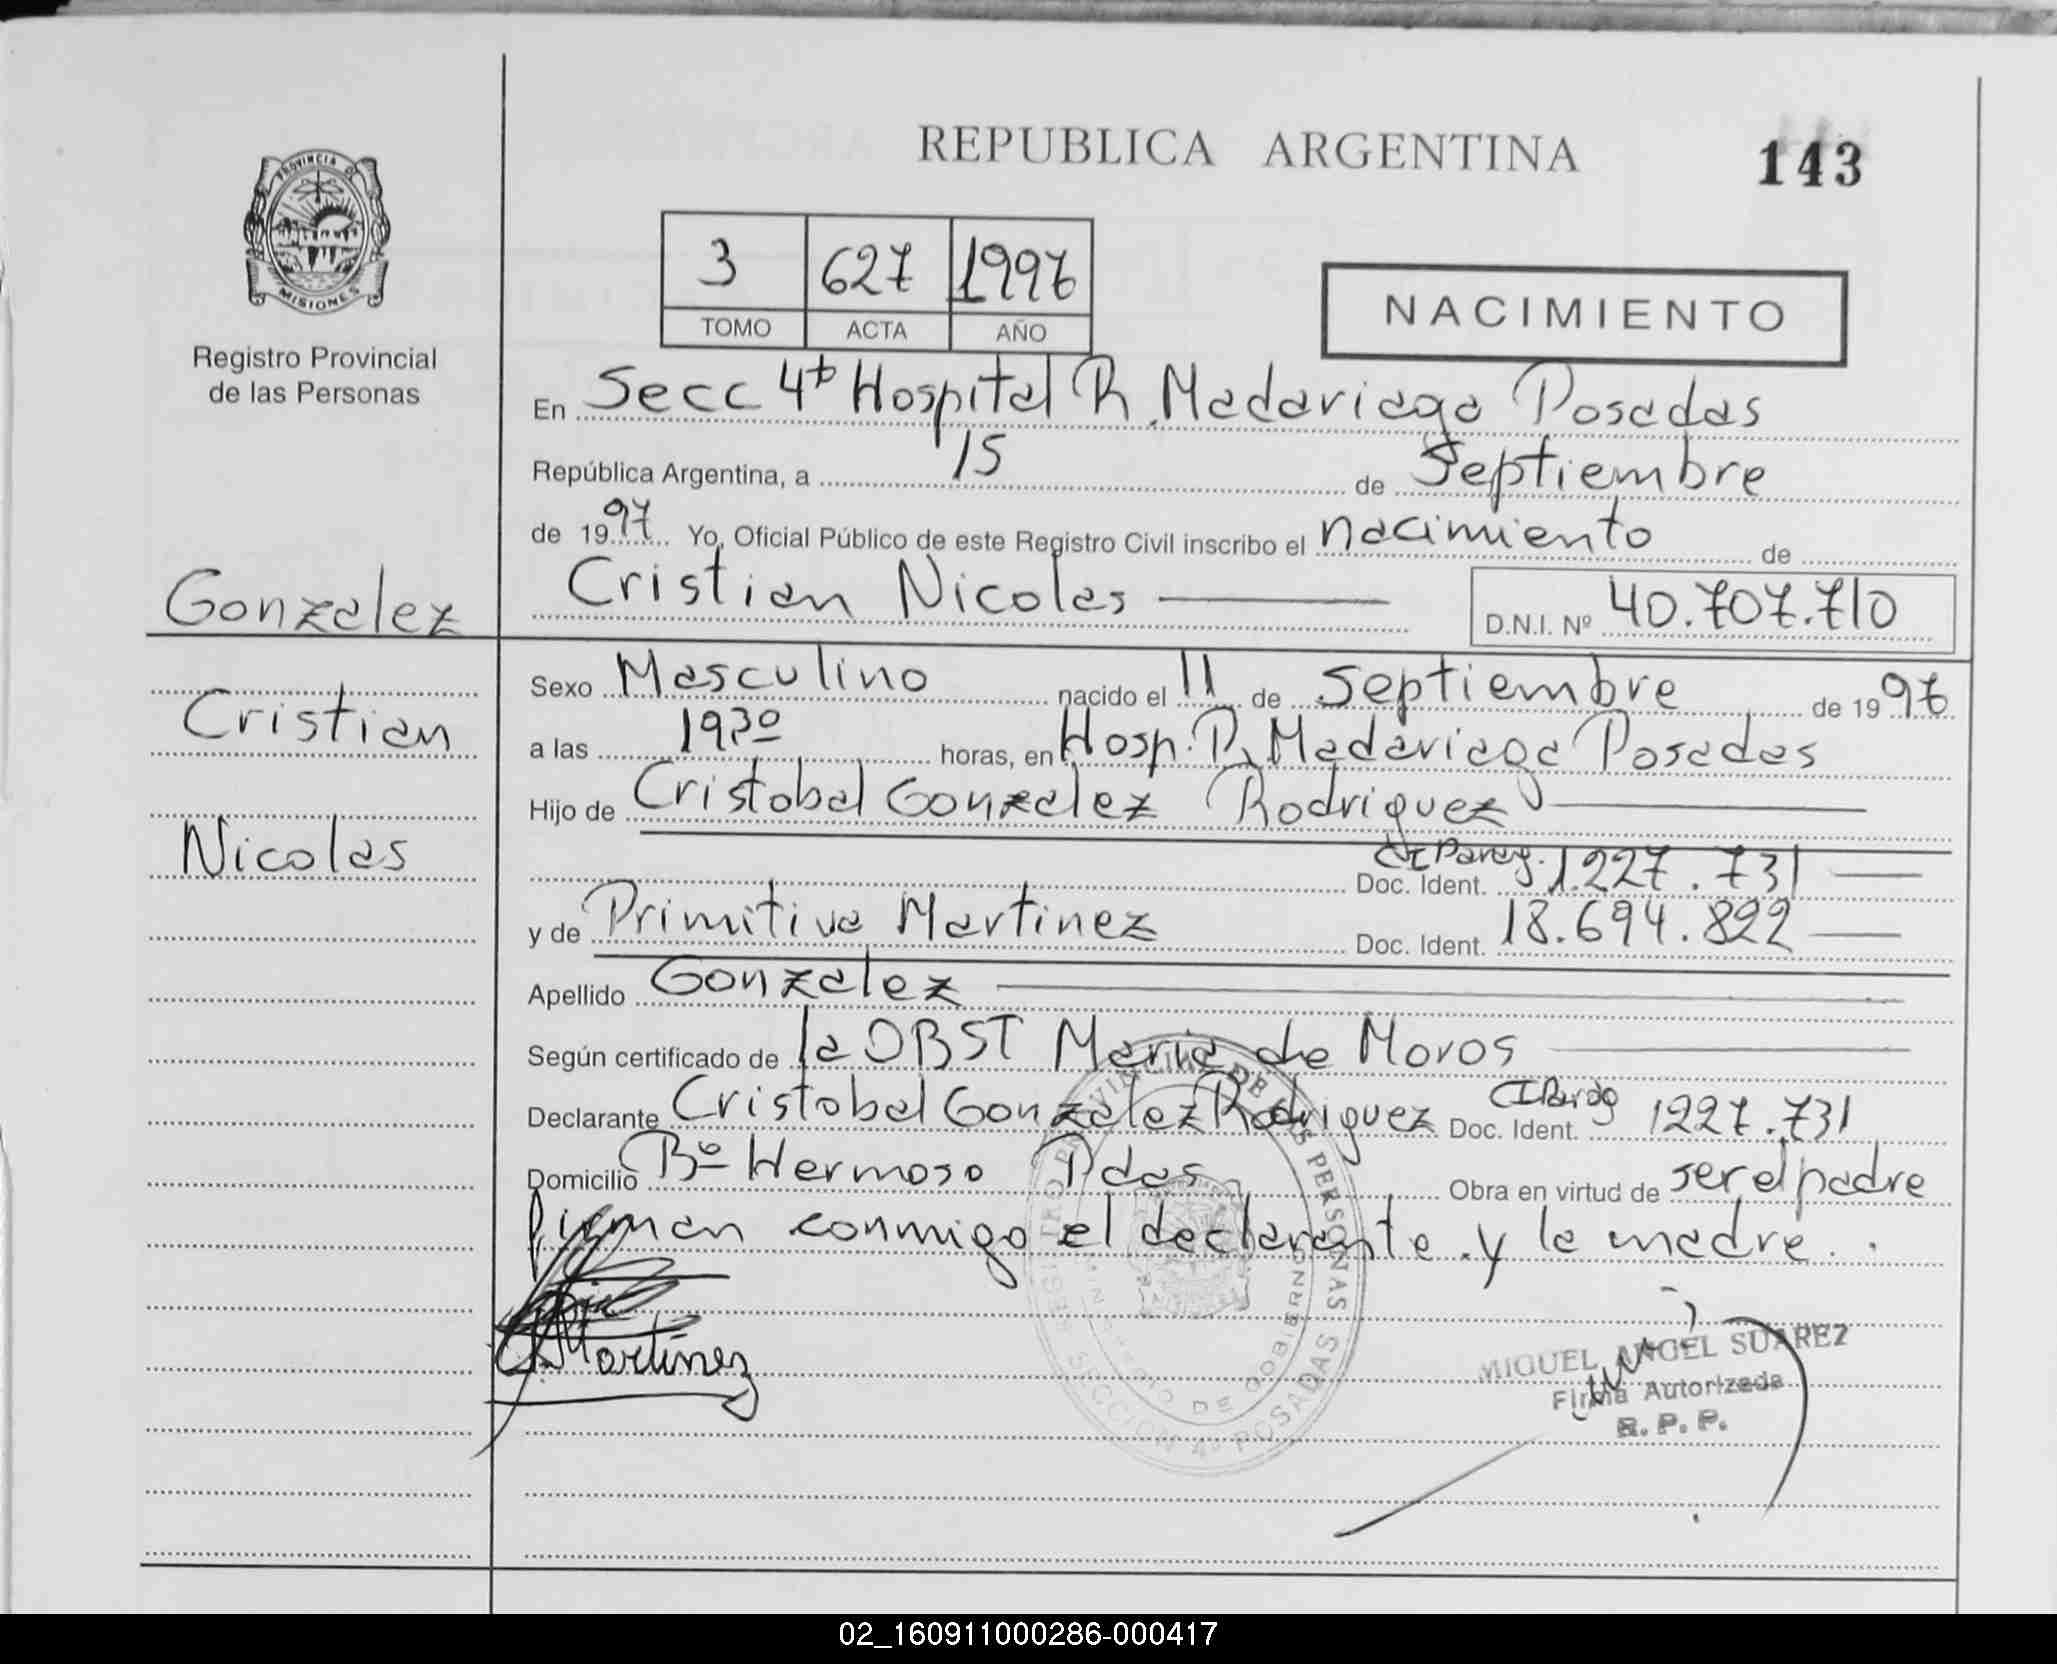 REPUBLICA ARGENTINA
143
PROVINCIA DE
MISIONES
Registro Provincial
de las Personas
3 627 1997
TOMO ACTA AÑO
NACIMIENTO
En Secc 4ta Hospital R. Madariaga Posadas
República Argentina, a 15 de Septiembre
de 1997 Yo, Oficial Público de este Registro Civil inscribo el nacimiento de
Cristian Nicolas D.N.I. Nº 40.707.710
Gonzalez
Cristian
Nicolas
Sexo Masculino nacido el 11 de Septiembre de 1997
a las 1930 horas, en Hosp. R. Madariaga Posadas
Hijo de Cristobal Gonzalez Rodriguez
Doc. Ident. CI Parag. 1.227.731
y de Primitiva Martinez Doc. Ident. 18.694.822
Apellido Gonzalez
Según certificado de la OBST Maria de Moros
Declarante Cristobal Gonzalez Rodriguez Doc. Ident. CI Parag 1227.731
Domicilio Bº Hermoso Pdas Obra en virtud de ser el padre
firman conmigo el declarante y la madre.
Martinez
REGISTRO PROVINCIAL DE LAS PERSONAS
MINISTERIO DE GOBIERNO
SECCION 4º POSADAS
MIGUEL ANGEL SUAREZ
Firma Autorizada
R.P.P.
02_160911000286-000417